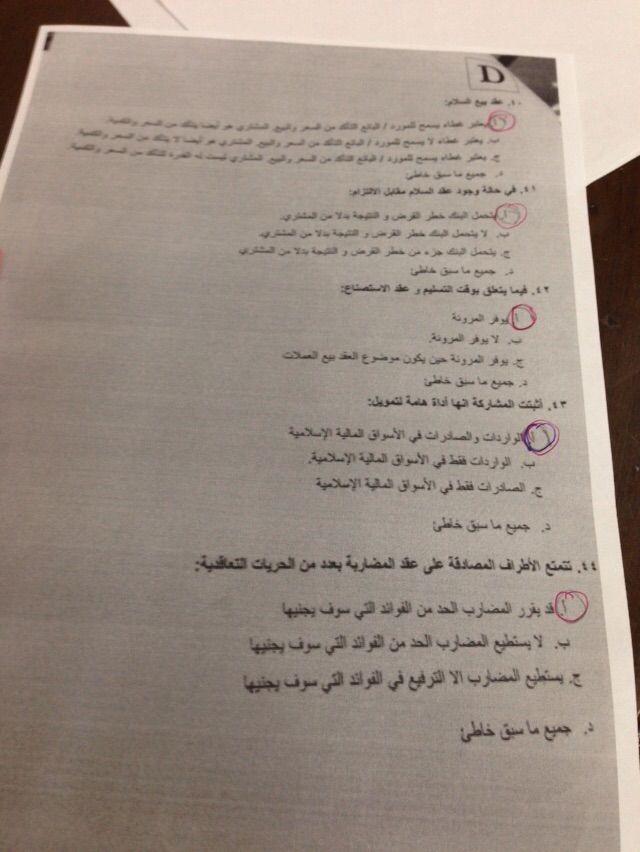 D
٤٠. عقد بيع السلام:
أ. يعتبر غطاء يسمح للمورد / البائع التأكد من السعر والبيع. المشتري هو أيضا يتأكد من السعر والكمية.
ب. يعتبر غطاء لا يسمح للمورد / البائع التأكد من السعر والبيع. المشتري هو أيضا لا يتأكد من السعر والكمية.
ج. يعتبر غطاء يسمح للمورد / البائع التأكد من السعر والبيع. المشتري ليست له القدرة للتأكد من السعر والكمية.
د. جميع ما سبق خاطئ
٤١. في حالة وجود عقد السلام مقابل الالتزام:
أ. يتحمل البنك خطر القرض و النتيجة بدلا من المشتري.
ب. لا يتحمل البنك خطر القرض و النتيجة بدلا من المشتري.
ج. يتحمل البنك جزء من خطر القرض و النتيجة بدلا من المشتري
د. جميع ما سبق خاطئ
٤٢. فيما يتعلق بوقت التسليم و عقد الاستصناع:
أ. يوفر المرونة
ب. لا يوفر المرونة.
ج. يوفر المرونة حين يكون موضوع العقد بيع العملات
د. جميع ما سبق خاطئ
٤٣. أثبتت المشاركة انها أداة هامة لتمويل:
أ. الواردات والصادرات في الأسواق المالية الإسلامية
ب. الواردات فقط في الأسواق المالية الإسلامية.
ج. الصادرات فقط في الأسواق المالية الإسلامية
د. جميع ما سبق خاطئ
٤٤. تتمتع الأطراف المصادقة على عقد المضاربة بعدد من الحريات التعاقدية:
أ. قد يقرر المضارب الحد من الفوائد التي سوف يجنيها
ب. لا يستطيع المضارب الحد من الفوائد التي سوف يجنيها
ج. يستطيع المضارب الا الترفيع في الفوائد التي سوف يجنيها
د. جميع ما سبق خاطئ